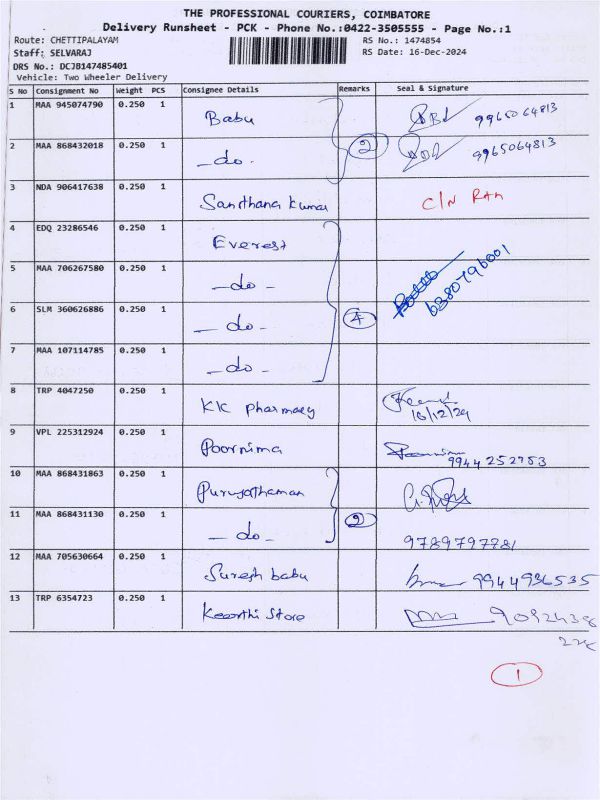 THE PROFESSIONAL COURIERS, COIMBATORE
Delivery Runsheet - PCK - Phone No.:0422-3505555 - Page No.:1
Route: CHETTIPALAYAM RS No.: 1474854
Staff: SELVARAJ RS Date: 16-Dec-2024
DRS No.: DCJB147485401
Vehicle: Two Wheeler Delivery
S No Consignment No Weight PCS Consignee Details Remarks Seal & Signature
1 MAA 945074790 0.250 1 Babu 9965064813
2 MAA 868432018 0.250 1 - do - 2 9965064813
3 NDA 906417638 0.250 1 Santhana kumar C/N RAM
4 EDQ 23286546 0.250 1 Everest
5 MAA 706267580 0.250 1 - do - 6380796001
6 SLM 360626886 0.250 1 - do - 4
7 MAA 107114785 0.250 1 - do -
8 TRP 4047250 0.250 1 KK pharmacy 16/12/24
9 VPL 225312924 0.250 1 Poornima 9944252753
10 MAA 868431863 0.250 1 Purusothaman
11 MAA 868431130 0.250 1 - do - 2 9789797781
12 MAA 705630664 0.250 1 Suresh babu 9944936535
13 TRP 6354723 0.250 1 Keerthi Store 9092438
228
1